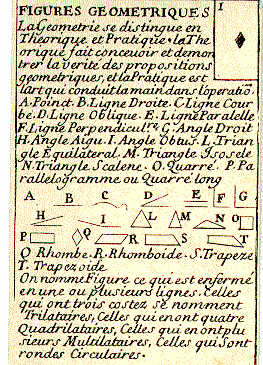 FIGURES GEOMETRIQUES
1
La Geometrie se distingue en
Theorique et Pratique. la The
orique fait concevoir et demon
trer la verite des propositions
geometriques, et la Pratique est
l'art qui conduit la main dans l'operatio.
A. Poinct. B. Ligne Droite. C. Ligne Cour
be. D. Ligne Oblique. E. Ligne Paralelle
F. Ligne Perpendicul.re G. Angle Droit
H. Angle Aigu. I. Angle Obtus. L. Trian
gle Equilateral. M. Triangle Isosele
N. Triangle Scalene. O. Quarré. P. Pa
rallelogramme ou Quarré long
A B C D E F G
H I L M N O
P Q R S T
Q Rhombe. R. Rhomboide. S. Trapeze
T. Trapezoide
On nomme Figure ce qui est enfermé
en une ou plusieurs lignes. Celles
qui ont trois costez se nomment
Trilataires, Celles qui en ont quatre
Quadrilataires, Celles qui en ont plu
sieurs Multilataires, Celles qui sont
rondes Circulaires.